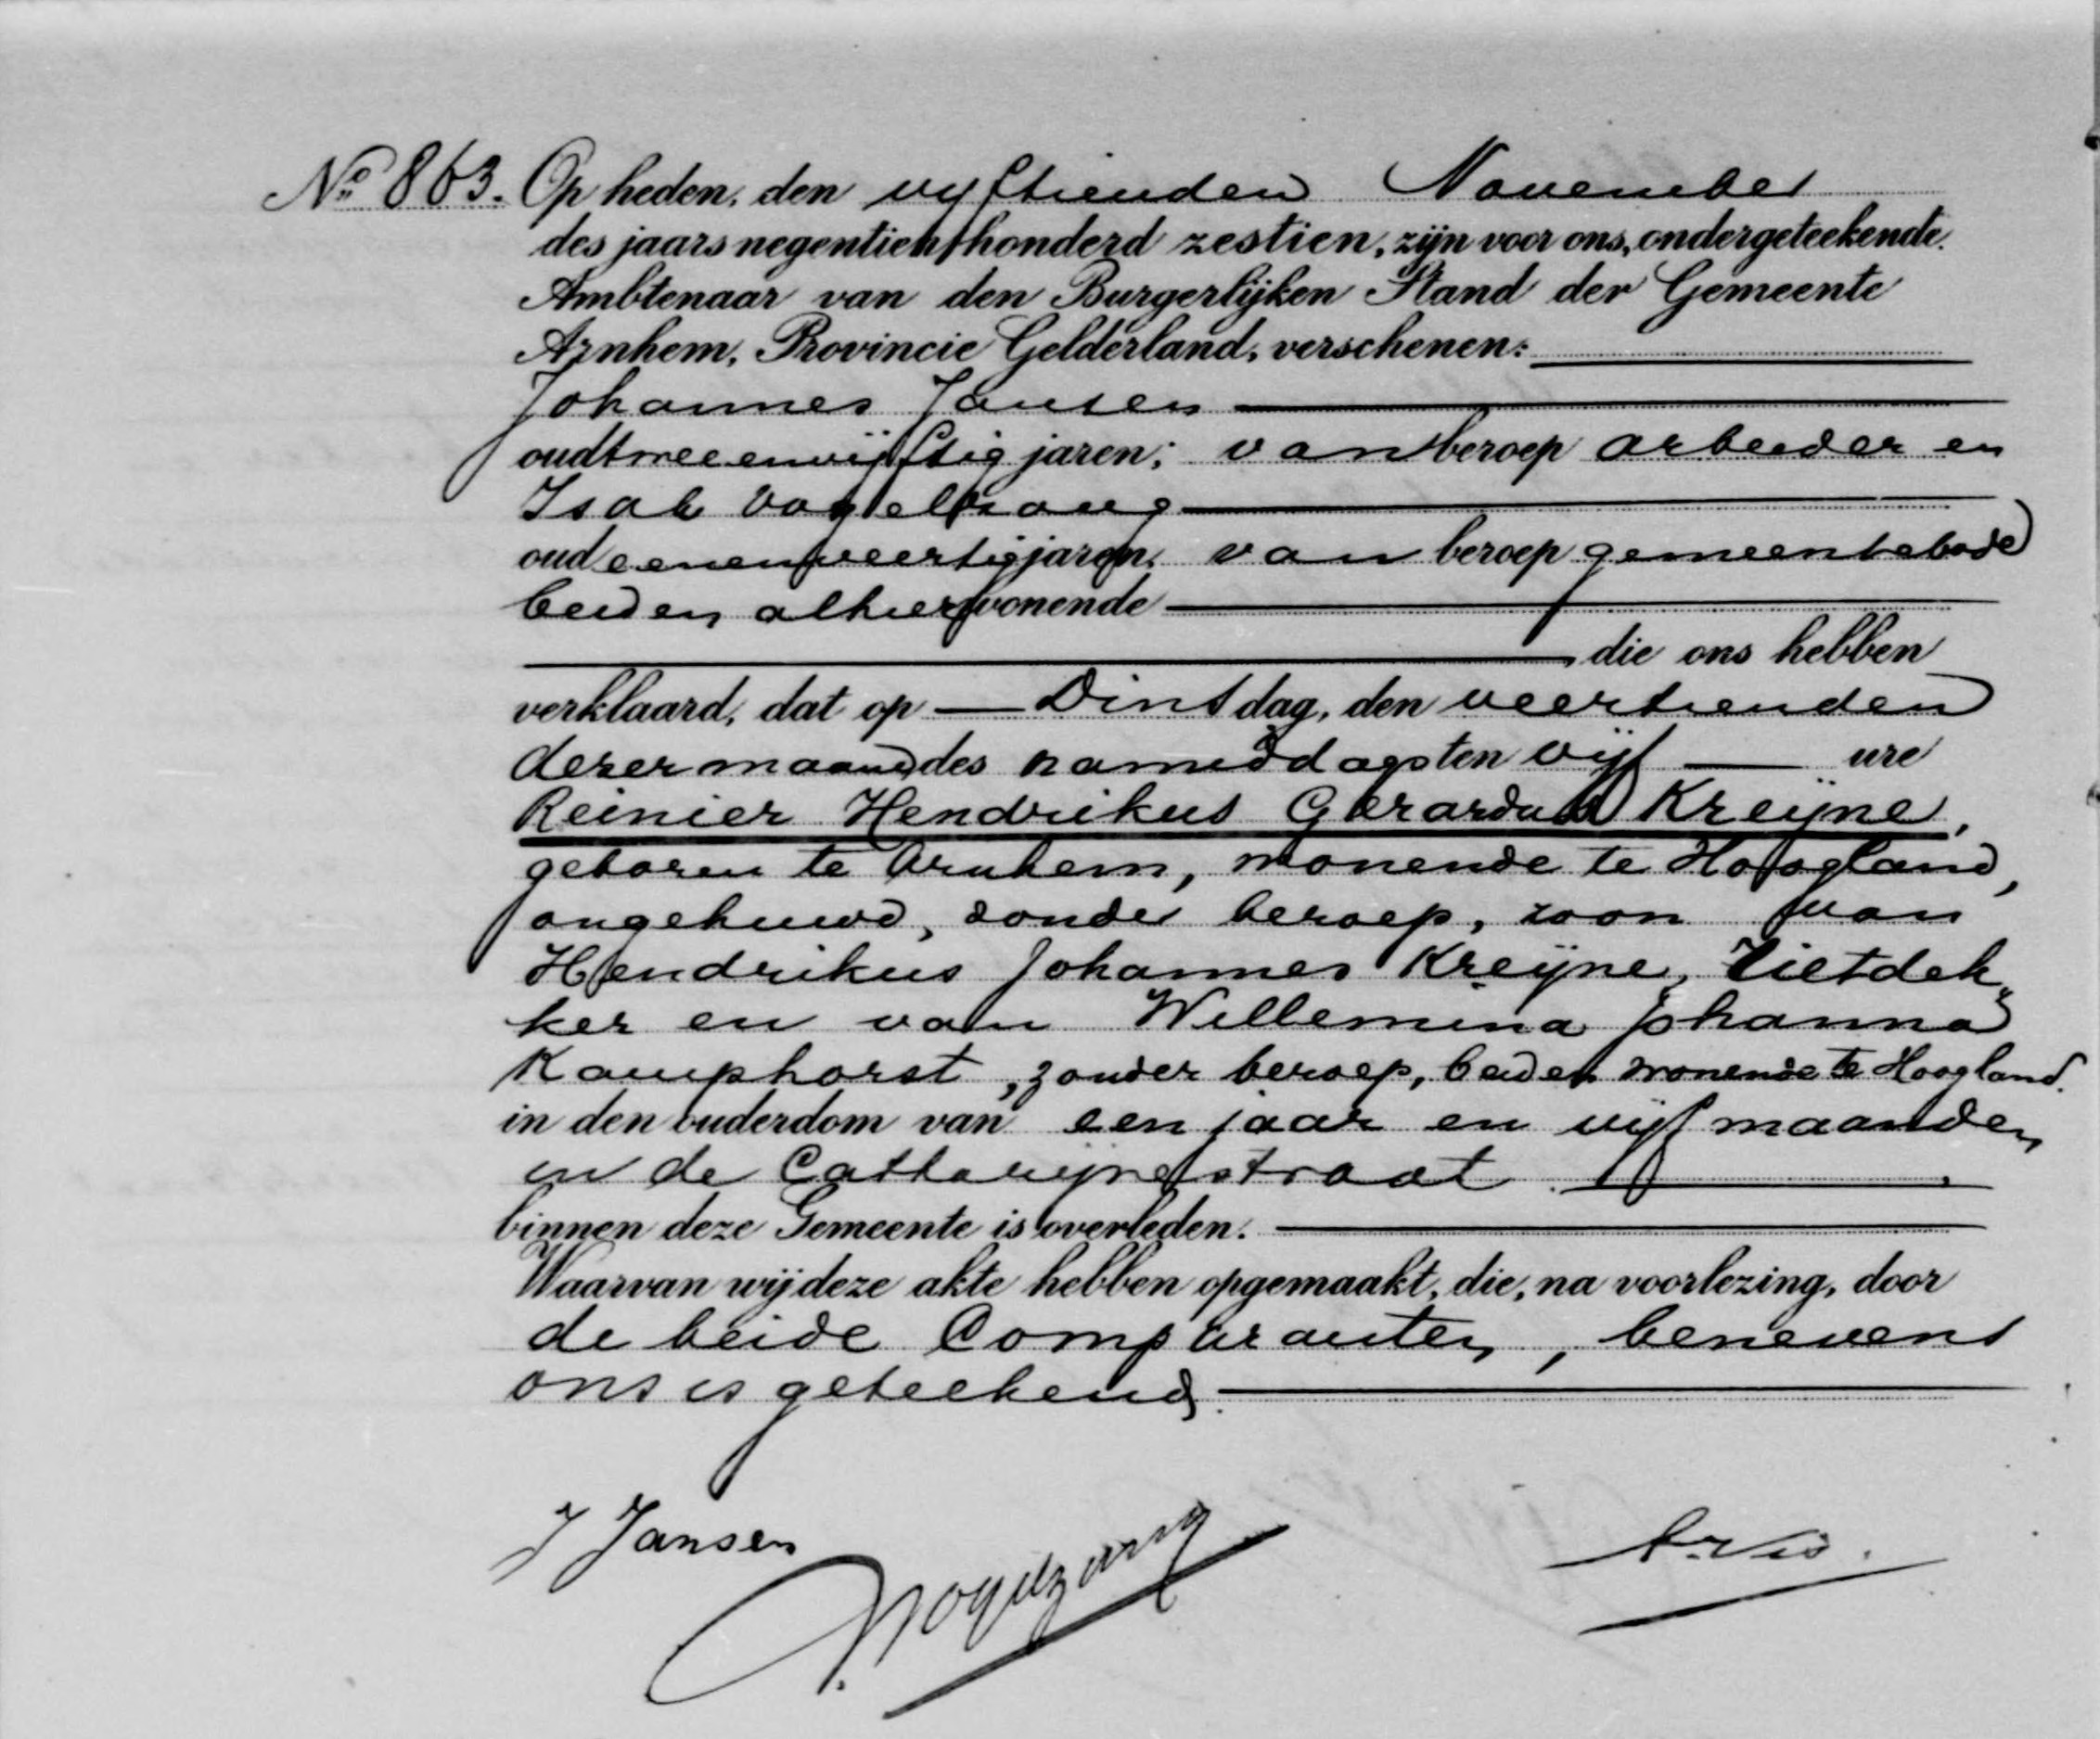 No 863. Op heden, den vyftienden November
des jaars negentienhonderd zestien, zijn voor ons, ondergeteekende.
Ambtenaar van den Burgerlijken Stand der Gemeente
Arnhem, Provincie Gelderland, verschenen:
Johannes Jansen
oud tweeenvijftig jaren; van beroep arbeider en
Isak Vogelzang
oud eenenveertig jaren, van beroep gemeentebode
beiden alhier wonende
die ons hebben
verklaard, dat op Dinsdag, den veertienden
dezer maand des namiddags ten vijf ure
Reinier Hendrikus Gerardus Kreijne,
geboren te Arnhem, wonende te Hoogland,
ongehuwd, zonder beroep, zoon van
Hendrikus Johannes Kreijne, rietdek„
ker en van Willemina Johanna
Kamphorst, zonder beroep, beiden wonende te Hoogland.
in den ouderdom van een jaar en vijf maanden
in de Catharijnestraat
binnen deze Gemeente is overleden.
Waarvan wij deze akte hebben opgemaakt, die, na voorlezing, door
de beide Comparanten, benevens
ons is geteekend.
J Jansen
Vogelzang